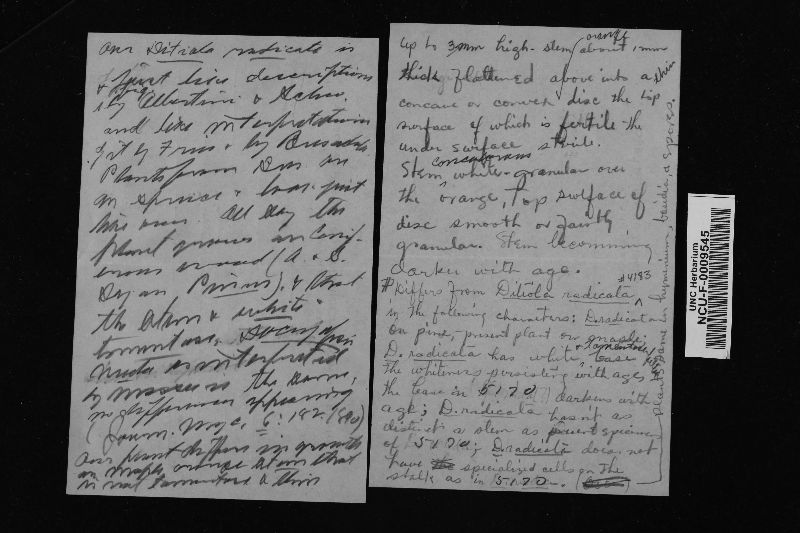 Our Ditiola radicata is
just like descriptions
& figs by Albertini & Schw.
and like interpretation
of it by Fries & by Bresadola
Plants from Bres are
on spruce & look just
like ours. All say the
plant grows on conif-
erous wood (A. & S.
say on Pinus) & that
the stem is white
tomentose.
nuda as interpreted
by Massee is the same,
no difference appearing
(Journ. Myc. 6: 182, 1890)
Our plant differs in growth
on maple, orange stem that
is not tomentose & thin
up to 3mm high - stem orange about 1mm
thick flattened above into a thin
concave or convex disc the top
surface of which is fertile - the
under surface sterile.
Stem concolorous white-granular over
the orange, top surface of
disc smooth or faintly
granular. Stem becoming
darker with age.
Differs from Ditiola radicata #4183
in the following characters: D. radicata on
on pine, - present plant on maple;
D. radicata has white tomentose base
the whiteness persisting with age,
the base in 5170 darkens with
age; D. radicata hasn't as
distinct a stem as present specimens
of 5170; D. radicata does not
have the specialized cells on the
stalk as in 5170.
plants same in hymenium, basidia, & spores.
UNC Herbarium
NCU-F-0009545